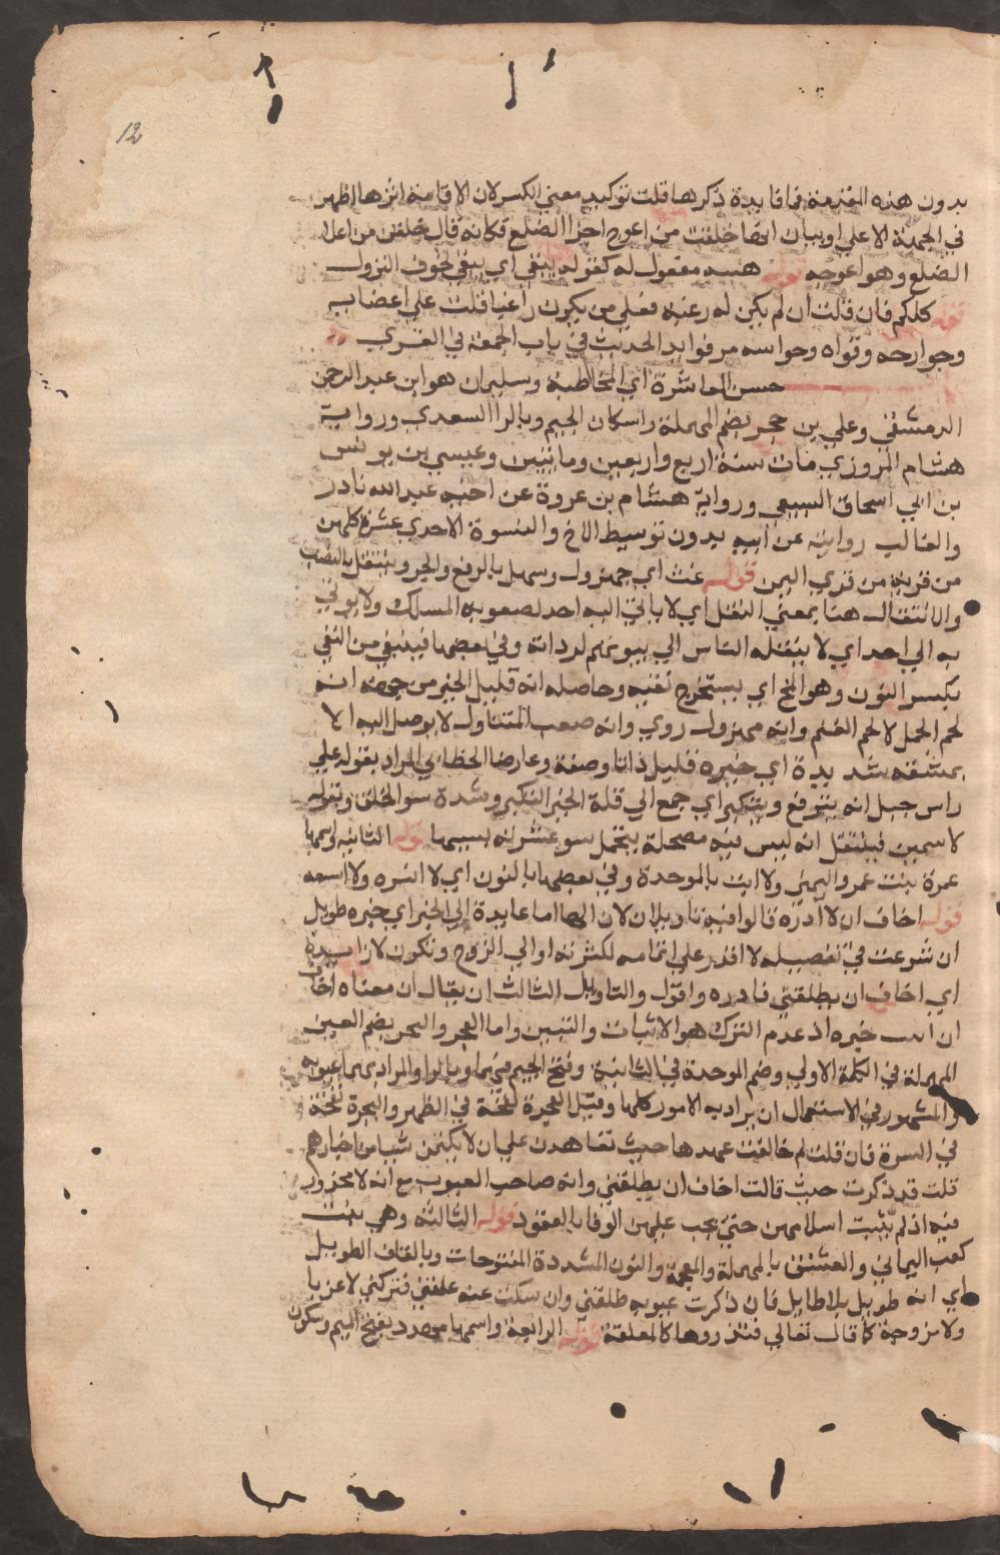 12
بدون هذه المقدمة فما فايدة ذكرها قلت توكيد معنى الكسر لان الاقامة اثرها اظهر
في الجهة الاعلى او بيان انها خلقت من اعوج اجزا الضلع فكانه قال خلقن من اعلا
الضلع وهو اعوجه قوله هيبه مفعول له كقوله يبقى اي يبقى لخوف النزول
كلكم فان قلت ان لم يكن له رعيه فعلى من يكون راعيا قلت على اعضايه
وجوارحه وقواه وحواسه مر فوايد الحديث في باب الجمعة في القرى
حسن المعاشرة اي المخاطبة وسليمان هو ابن عبد الرحمن
الدمشقي وعلي بن حجر بضم المهملة واسكان الجيم وبالرا السعدي ورواية
هشام المروزي مات سنة اربع واربعين ومايتين وعيسى بن يونس
بن ابي اسحاق السبيعي ورواية هشام بن عروة عن اخيه عبد الله نادر
والغالب روايته عن ابيه بدون توسيط الاخ والنسوة الاحدي عشرة كلهن
من قرية من قري اليمن قوله غث اي مهزول وسهل بالرفع والجر وينتقل بالنصب
والانتقال هنا بمعنى النقل اي لا ياتي اليه احد لصعوبه المسلك ولا يوتي
به الي احد اي لا ينقله الناس الي بيوتهم لرداته وفي بعضها فينتقي من النقي
بكسر النون وهو المخ اي يستخرج نقيه وحاصله انه قليل الخير من جهة انه
لحم الجمل لا لحم الغنم وانه مهزول ردي وانه صعب المتناول لا يوصل اليه الا
بمشقه شديدة اي خيره قليل ذاتا وصفة وعارضا الخطابي المراد بقوله علي
راس جبل انه يترفع ويتكبر اي جمع الي قلة الخير التكبر وشدة سو الخلق وبقوله
لا سمين فينتقل انه ليس فيه مصحلة يتحمل سو عشرته بسببها قوله الثانيه واسمها
عمرة بنت عمرو اليمني ولا ابث بالموحدة وفي بعضها بالنون اي لا انشره ولا اسمه
قوله اخاف ان لا اذره قالوا فيه تاويلان لان الها اما عايدة الي الخبر اي خبره طويل
ان شرعت في تفصيله لا اقدر على اتمامه لكثرته او الي الزوج وتكون لا زايدة
اي اخاف ان يطلقني فاذره واقول والتاويل الثالث ان يقال ان معناه اخاف
ان اثبت خبره اذ عدم الترك هو الاثبات والتبيين واما العجر والبجر بضم العين
المهملة في الكلمة الاولي وضم الموحدة في الثانية وفتح الجيم فيهما وبالرا والمراد بهما عيوبه
والمشهور في الاستعمال ان يراد به الامور كلها وقيل العجرة نفخة في الظهر والبجرة نفخة
في السرة فان قلت لم خالفت عهدها حيث تعاهدن على ان لا يكتمن شيا من اخبارهم
قلت قد ذكرت حيث قالت اخاف ان يطلقني وانه صاحب العيوب مع انه لا محذور
فيه اذ لم يثبت اسلامهن حتى يجب عليهن الوفا بالعقود قوله الثالثه وهي بنت
كعب اليماني والعشنق بالمهملة والمعجمة والنون المشددة المفتوحات وبالقاف الطويل
اي انه طويل بلا طايل فان ذكرت عيوبه طلقني وان سكت عنه علقني فتركني لا عزبا
ولا مزوجة كما قال تعالي فتذروها كالمعلقة قوله الرابعة واسمها مهدد بفتح الميم وسكون